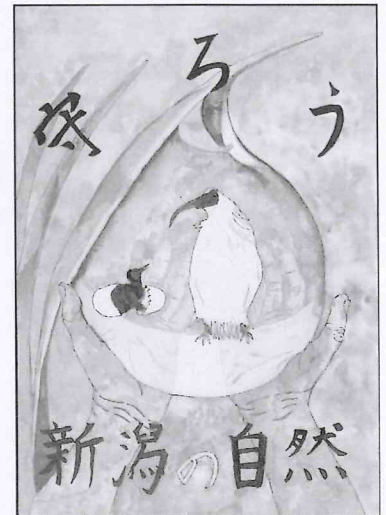 ろう
新潟の自然